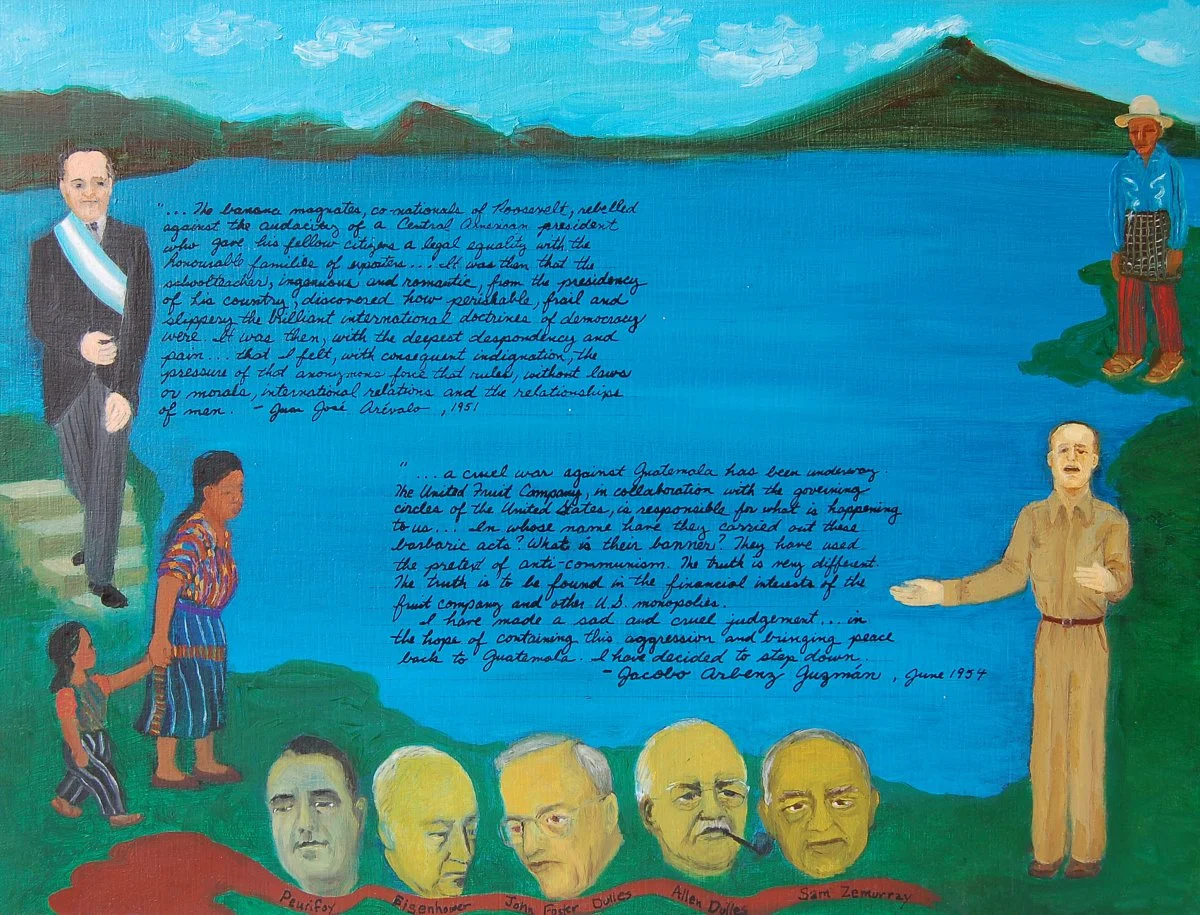 "... The banana magnates, co-nationals of Roosevelt, rebelled
against the audacity of a Central American president
who gave his fellow citizens a legal equality with the
honourable families of exporters.... It was then that the
schoolteacher, ingenuous and romantic, from the presidency
of his country, discovered how perishable, frail and
slippery the brilliant international doctrines of democracy
were. It was then, with the deepest despondency and
pain... that I felt, with consequent indignation, the
pressure of that anonymous force that rules, without laws
or morals, international relations and the relationships
of men. - Juan José Arévalo, 1951
"... a cruel war against Guatemala has been underway.
The United Fruit Company, in collaboration with the governing
circles of the United States, is responsible for what is happening
to us.... In whose name have they carried out these
barbaric acts? What is their banner? They have used
the pretext of anti-communism. The truth is very different.
The truth is to be found in the financial interests of the
fruit company and other U.S. monopolies.
I have made a sad and cruel judgement... in
the hope of containing this aggression and bringing peace
back to Guatemala. I have decided to step down.
- Jacobo Arbenz Guzmán, June 1954
Peurifoy Eisenhower John Foster Dulles Allen Dulles Sam Zemurray